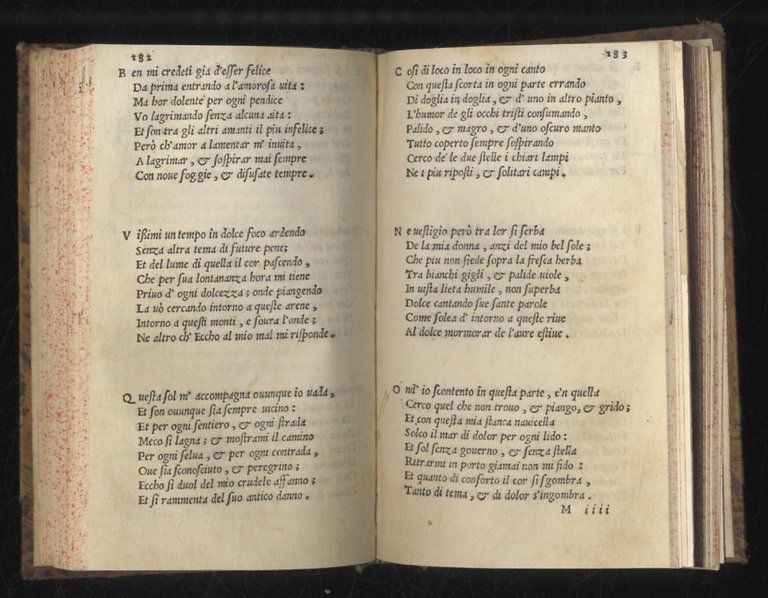 182
B en mi credeti gia d'esser felice
Da prima entrando a l'amorosa uita :
Ma hor dolente per ogni pendice
Vo lagrimando senza alcuna aita :
Et son tra gli altri amanti il piu infelice ;
Però ch'amor a lamentar m' inuita ,
A lagrimar , & sospirar mai sempre
Con noue foggie , & disusate tempre .
V issimi un tempo in dolce foco ardendo
Senza altra tema di future pene ;
Et del lume di quella il cor pascendo ,
Che per sua lontananza hora mi tiene
Priuo d' ogni dolcezza ; onde piangendo
La uò cercando intorno a queste arene ,
Intorno a questi monti , e soura l'onde ;
Ne altro ch' Eccho al mio mal mi risponde .
Q uesta sol m' accompagna ouunque io uada ,
Et son ouunque sia sempre uicino :
Et per ogni sentiero , & ogni strada
Meco si lagna ; & mostrami il camino
Per ogni selua , & per ogni contrada ,
Oue sia sconosciuto , & peregrino ;
Eccho si duol del mio crudele affanno ;
Et si rammenta del suo antico danno .
183
C osi di loco in loco in ogni canto
Con questa scorta in ogni parte errando
Di doglia in doglia , & d' uno in altro pianto ,
L'humor de gli occhi tristi consumando ,
Palido , & magro , & d'uno oscuro manto
Tutto coperto sempre sospirando
Cerco de le due stelle i chiari lampi
Ne i piu riposti , & solitari campi .
N e uestigio però tra lor si serba
De la mia donna , anzi del mio bel sole ;
Che piu non siede sopra la fresca herba
Tra bianchi gigli , & palide uiole ,
In uista lieta humile , non superba
Dolce cantando sue sante parole
Come solea d' intorno a queste riue
Al dolce mormorar de l'aure estiue .
O nd' io scontento in questa parte , e'n quella
Cerco quel che non trouo , & piango, & grido ;
Et con questa mia stanca nauicella
Solco il mar di dolor per ogni lido :
Et sol senza gouerno , & senza stella
Ritrarmi in porto giamai non mi fido :
Et quanto di conforto il cor si sgombra ,
Tanto di tema , & di dolor s'ingombra .
M iiii